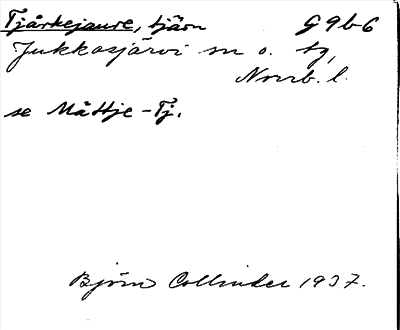 Tjårkejaure, tjärn G 9 b 6
Jukkasjärvi sn o. tg,
Norrb. l.
se Måttje-Tj.
Björn Collinder 1937.